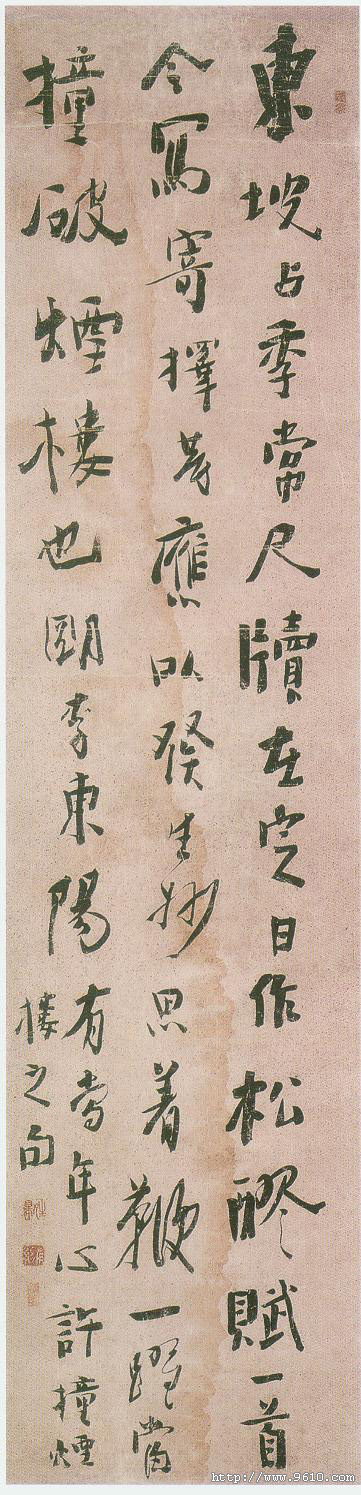 東坡与季常尺牘在定日作松醪賦一首
今寫寄擇等應以發生妙思着鞭一躍當
撞破煙樓也李東陽有當年心許撞煙
樓之句
http://www.9610.com